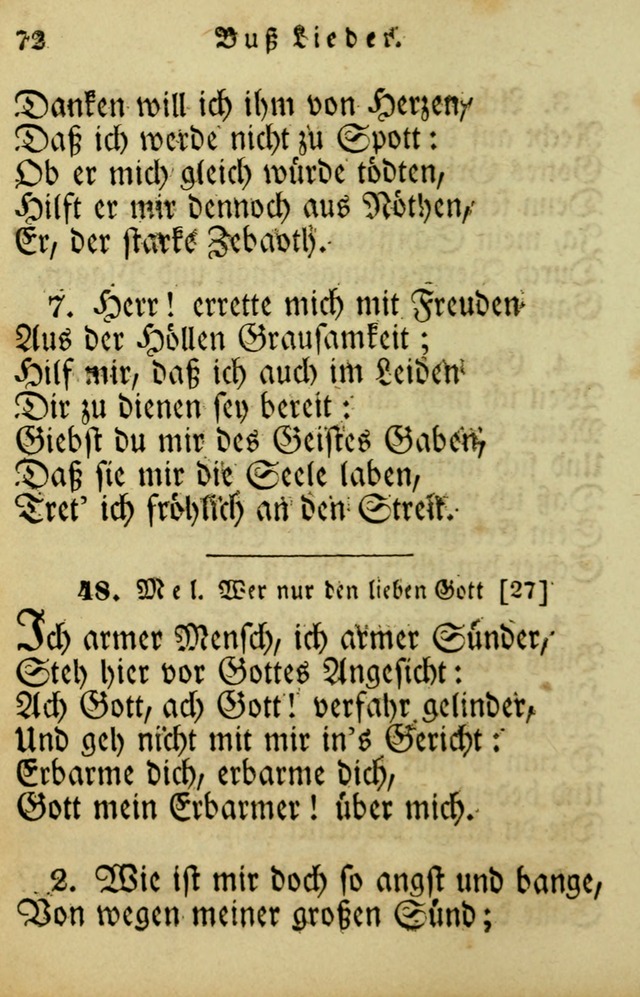 72 Buß Lieder.
Danken will ich ihm von Herzen,
Daß ich werde nicht zu Spott:
Ob er mich gleich würde tödten,
Hilft er mir dennoch aus Nöthen,
Er, der starke Zebaoth.
7. Herr! errette mich mit Freuden
Aus der Höllen Grausamkeit;
Hilf mir, daß ich auch im Leiden
Dir zu dienen sey bereit:
Giebst du mir des Geistes Gaben,
Daß sie mir die Seele laben,
Tret' ich fröhlich an den Streit.
48. Mel. Wer nur den lieben Gott [27]
Ich armer Mensch, ich armer Sünder,
Steh hier vor Gottes Angesicht:
Ach Gott, ach Gott! verfahr gelinder,
Und geh nicht mit mir in's Gericht:
Erbarme dich, erbarme dich,
Gott mein Erbarmer! über mich.
2. Wie ist mir doch so angst und bange,
Von wegen meiner großen Sünd;